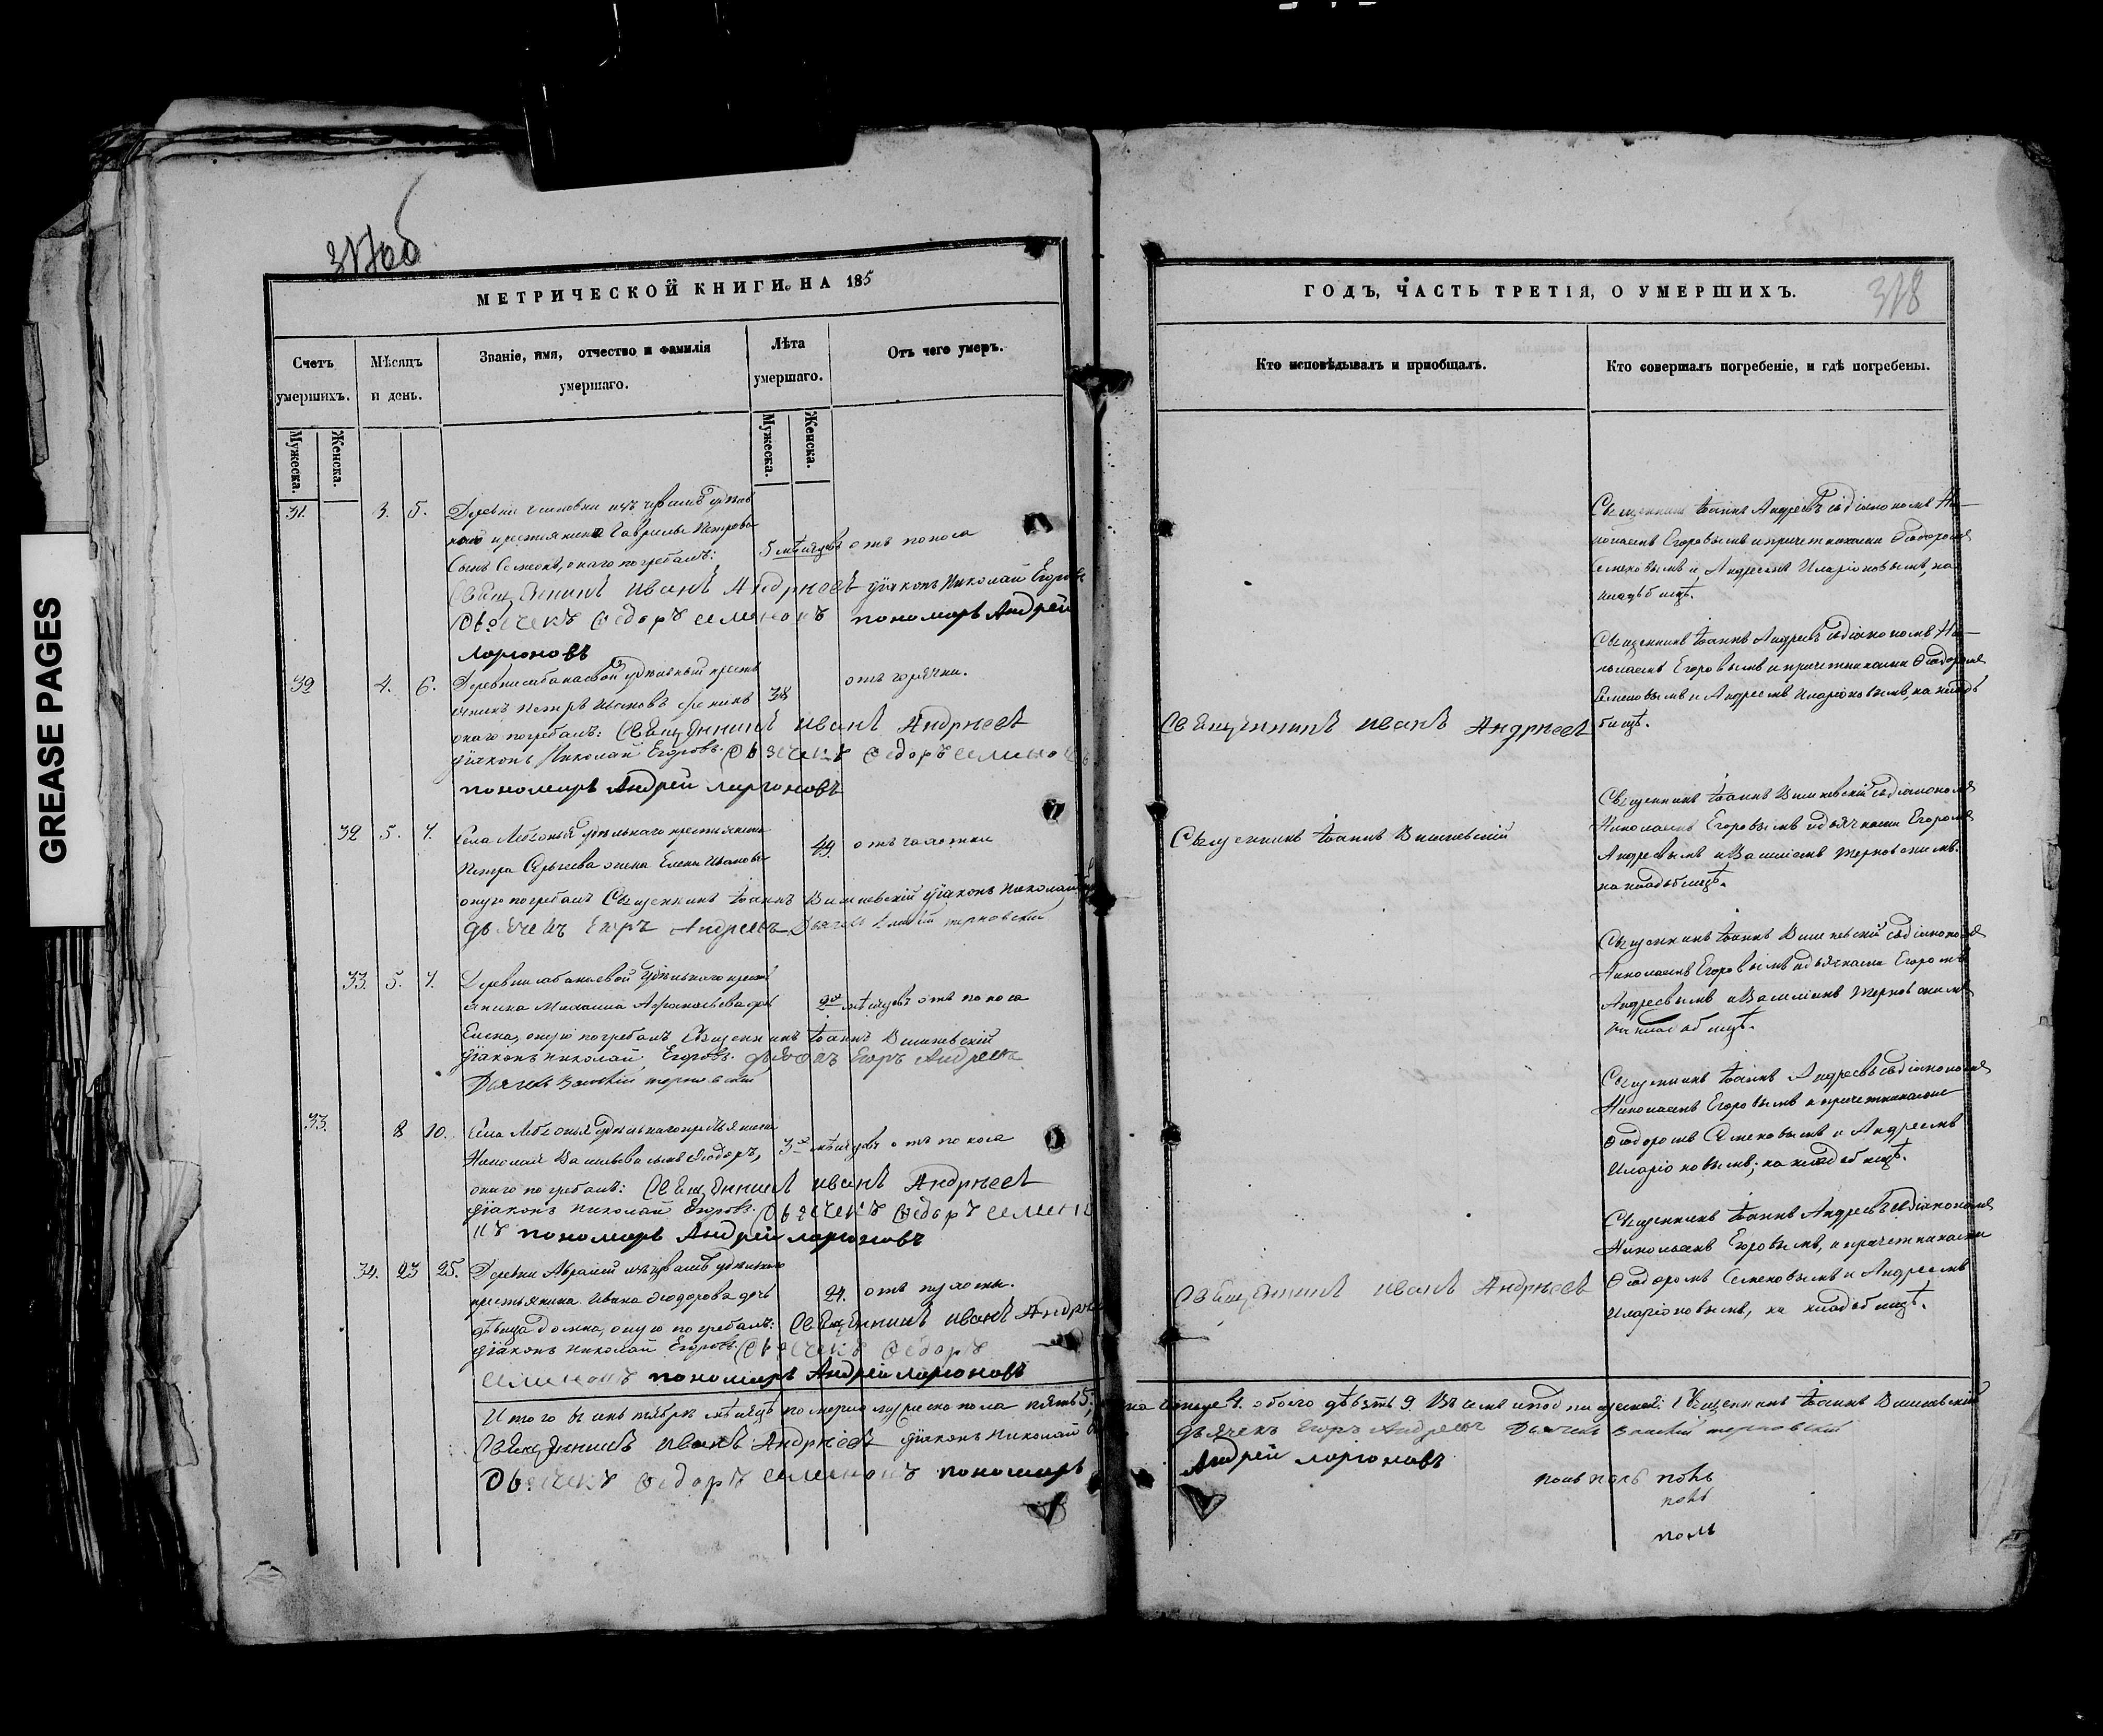 GREASE PAGES
317об
МЕТРИЧЕСКОЙ КНИГИ НА 185
Счетъ умершихъ.
Мѣсяцъ и день.
Званіе, имя, отчество и фамилія умершаго.
Лѣта умершаго.
Отъ чего умеръ.
Мужеска.
Женска.
Мужеска.
Женска.
31. 3. 5. Деревни изъ чувашъ удѣль
наго крестьянина Гаврилы Петрова
сынъ Семеонъ, онаго погребалъ:
5 мѣсяцовъ отъ поноса
Священникъ Иванъ Андрѣевъ діаконъ Николай Егоровъ
Дьячекъ Федоръ Семеновъ пономарь Андрей
Ларионовъ
32 4. 6. Деревни удѣльный кресть
янинъ Петръ Ивановъ
38
отъ горячки.
онаго погребалъ: Священникъ Иванъ Андрѣевъ
діаконъ Николай Егоровъ. Дьячекъ Федоръ Семеновъ
пономарь Андрей Ларионовъ
32 5. 7. Села удѣльнаго крестьянина
Петра жена Елена Иванова
49. отъ чахотки
оную погребалъ Священникъ Іоаннъ Вишневскій діаконъ Николай
дьячекъ Егоръ Андреевъ. Дьячекъ терновскій
33. 5. 7. Деревни удѣльнаго кресть
янина Михаила Афанасьева дочь
2 мѣсяцовъ отъ поноса
Елена, оную погребалъ Священникъ Іоаннъ Вишневскій
діаконъ Николай Егоровъ. дьячекъ Егоръ Андреевъ
Дьячекъ Василій терновскій
33. 8 10. Села удѣльнаго крестьянина
Николая Васильева сынъ Феодоръ,
3 мѣсяцовъ отъ поноса
онаго погребалъ: Священникъ Иванъ Андрѣевъ
діаконъ Николай Егоровъ. Дьячекъ Федоръ Семено
въ пономарь Андрей Ларионовъ
34. 23 25. Деревни изъ чувашъ удѣльнаго
крестьянина Ивана Феодорова дочь
24. отъ
дѣвица Домна, оную погребалъ: Священникъ Иванъ Андрѣевъ
діаконъ Николай Егоровъ. Дьячекъ Федоръ
Семеновъ пономарь Андрей Ларионовъ
Итого въ сентябрѣ мѣсяцѣ померло мужеска пола пять 5,
Священникъ Иванъ Андрѣевъ діаконъ Николай
Дьячекъ Федоръ Семеновъ пономарь
318
ГОДЪ, ЧАСТЬ ТРЕТІЯ, О УМЕРШИХЪ.
Кто исповѣдывалъ и пріобщалъ.
Кто совершалъ погребеніе, и гдѣ погребены.
Священникъ Іоаннъ Андреевъ съ діакономъ Ни-
колаемъ Егоровымъ и причетниками Феодоромъ
Семеновымъ и Андреемъ Иларіоновымъ, на
кладбищѣ.
Священникъ Іоаннъ Андреевъ съ діакономъ Ни-
колаемъ Егоровымъ и причетниками Феодоромъ
Семеновымъ и Андреемъ Иларіоновымъ, на клад
бищѣ.
Священникъ Иванъ Андрѣевъ
Священникъ Іоаннъ Вишневскій съ діакономъ
Николаемъ Егоровымъ и дьячками Егоромъ
Андреевымъ и Василіемъ Терновскимъ
на кладбищѣ.
Священникъ Іоаннъ Вишневскій
Священникъ Іоаннъ Вишневскій съ діакономъ
Николаемъ Егоровымъ и дьячками Егоромъ
Андреевымъ и Василіемъ Терновскимъ
на кладбищѣ.
Священникъ Іоаннъ Андреевъ съ діакономъ
Николаемъ Егоровымъ и причетниками
Феодоромъ Семеновымъ и Андреемъ
Иларіоновымъ, на кладбищѣ.
Священникъ Іоаннъ Андреевъ съ діакономъ
Николаемъ Егоровымъ, и причетниками
Феодоромъ Семеновымъ и Андреемъ
Иларіоновымъ, на кладбищѣ.
Священникъ Иванъ Андрѣевъ
женска 4. обоего девять 9. Въ семъ и подписуемся: Священникъ Іоаннъ Вишневскій
дьячекъ Егоръ Андреевъ Дьячекъ Василій терновскій
Андрей Ларионовъ